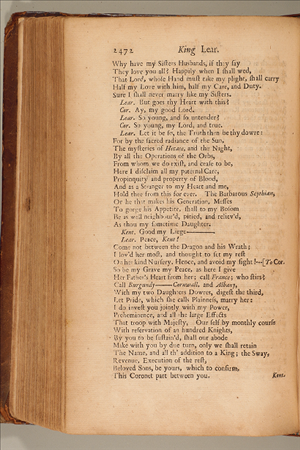 2472 King Lear.
Why have my Sisters Husbands, if they say
They love you all? Happily when I shall wed,
That Lord, whose Hand must take my plight, shall carry
Half my Love with him, half my Care, and Duty.
Sure I shall never marry like my Sisters.
Lear. But goes thy Heart with this?
Cor. Ay, my good Lord.
Lear. So young, and so untender?
Cor. So young, my Lord, and true.
Lear. Let it be so, thy Truth then be thy dower:
For by the sacred radiance of the Sun,
The mysteries of Hecate, and the Night,
By all the Operation of the Orbs,
From whom we do exist, and cease to be,
Here I disclaim all my paternal Care,
Propinquity and property of Blood,
And as a Stranger to my Heart and me,
Hold thee from this for ever. The Barbarous Scythian,
Or he that makes his Generation, Messes
To gorge his Appetite, shall to my Bosom
Be as well neighbour'd, pitied, and reliev'd,
As thou my sometime Daughter.
Kent. Good my Liege——
Lear. Peace, Kent!
Come not between the Dragon and his Wrath;
I lov'd her most, and thought to set my rest
On her kind Nursery. Hence, and avoid my sight!—[To Cor.
So be my Grave my Peace, as here I give
Her Father's Heart from her; call France; who stirs?
Call Burgundy——Cornwall, and Albany,
With my two Daughters Dowres, digest the third,
Let Pride, which she calls Plainness, marry her:
I do invest you jointly with my Power,
Preheminence, and all the large Effects
That troop with Majesty. Our self by monthly course
With reservation of an hundred Knights,
By you to be sustain'd, shall our abode
Make with you by due turn, only we shall retain
The Name, and all th' addition to a King; the Sway,
Revenue, Execution of the rest,
Beloved Sons, be yours, which to confirm,
This Coronet part between you.
Kent.